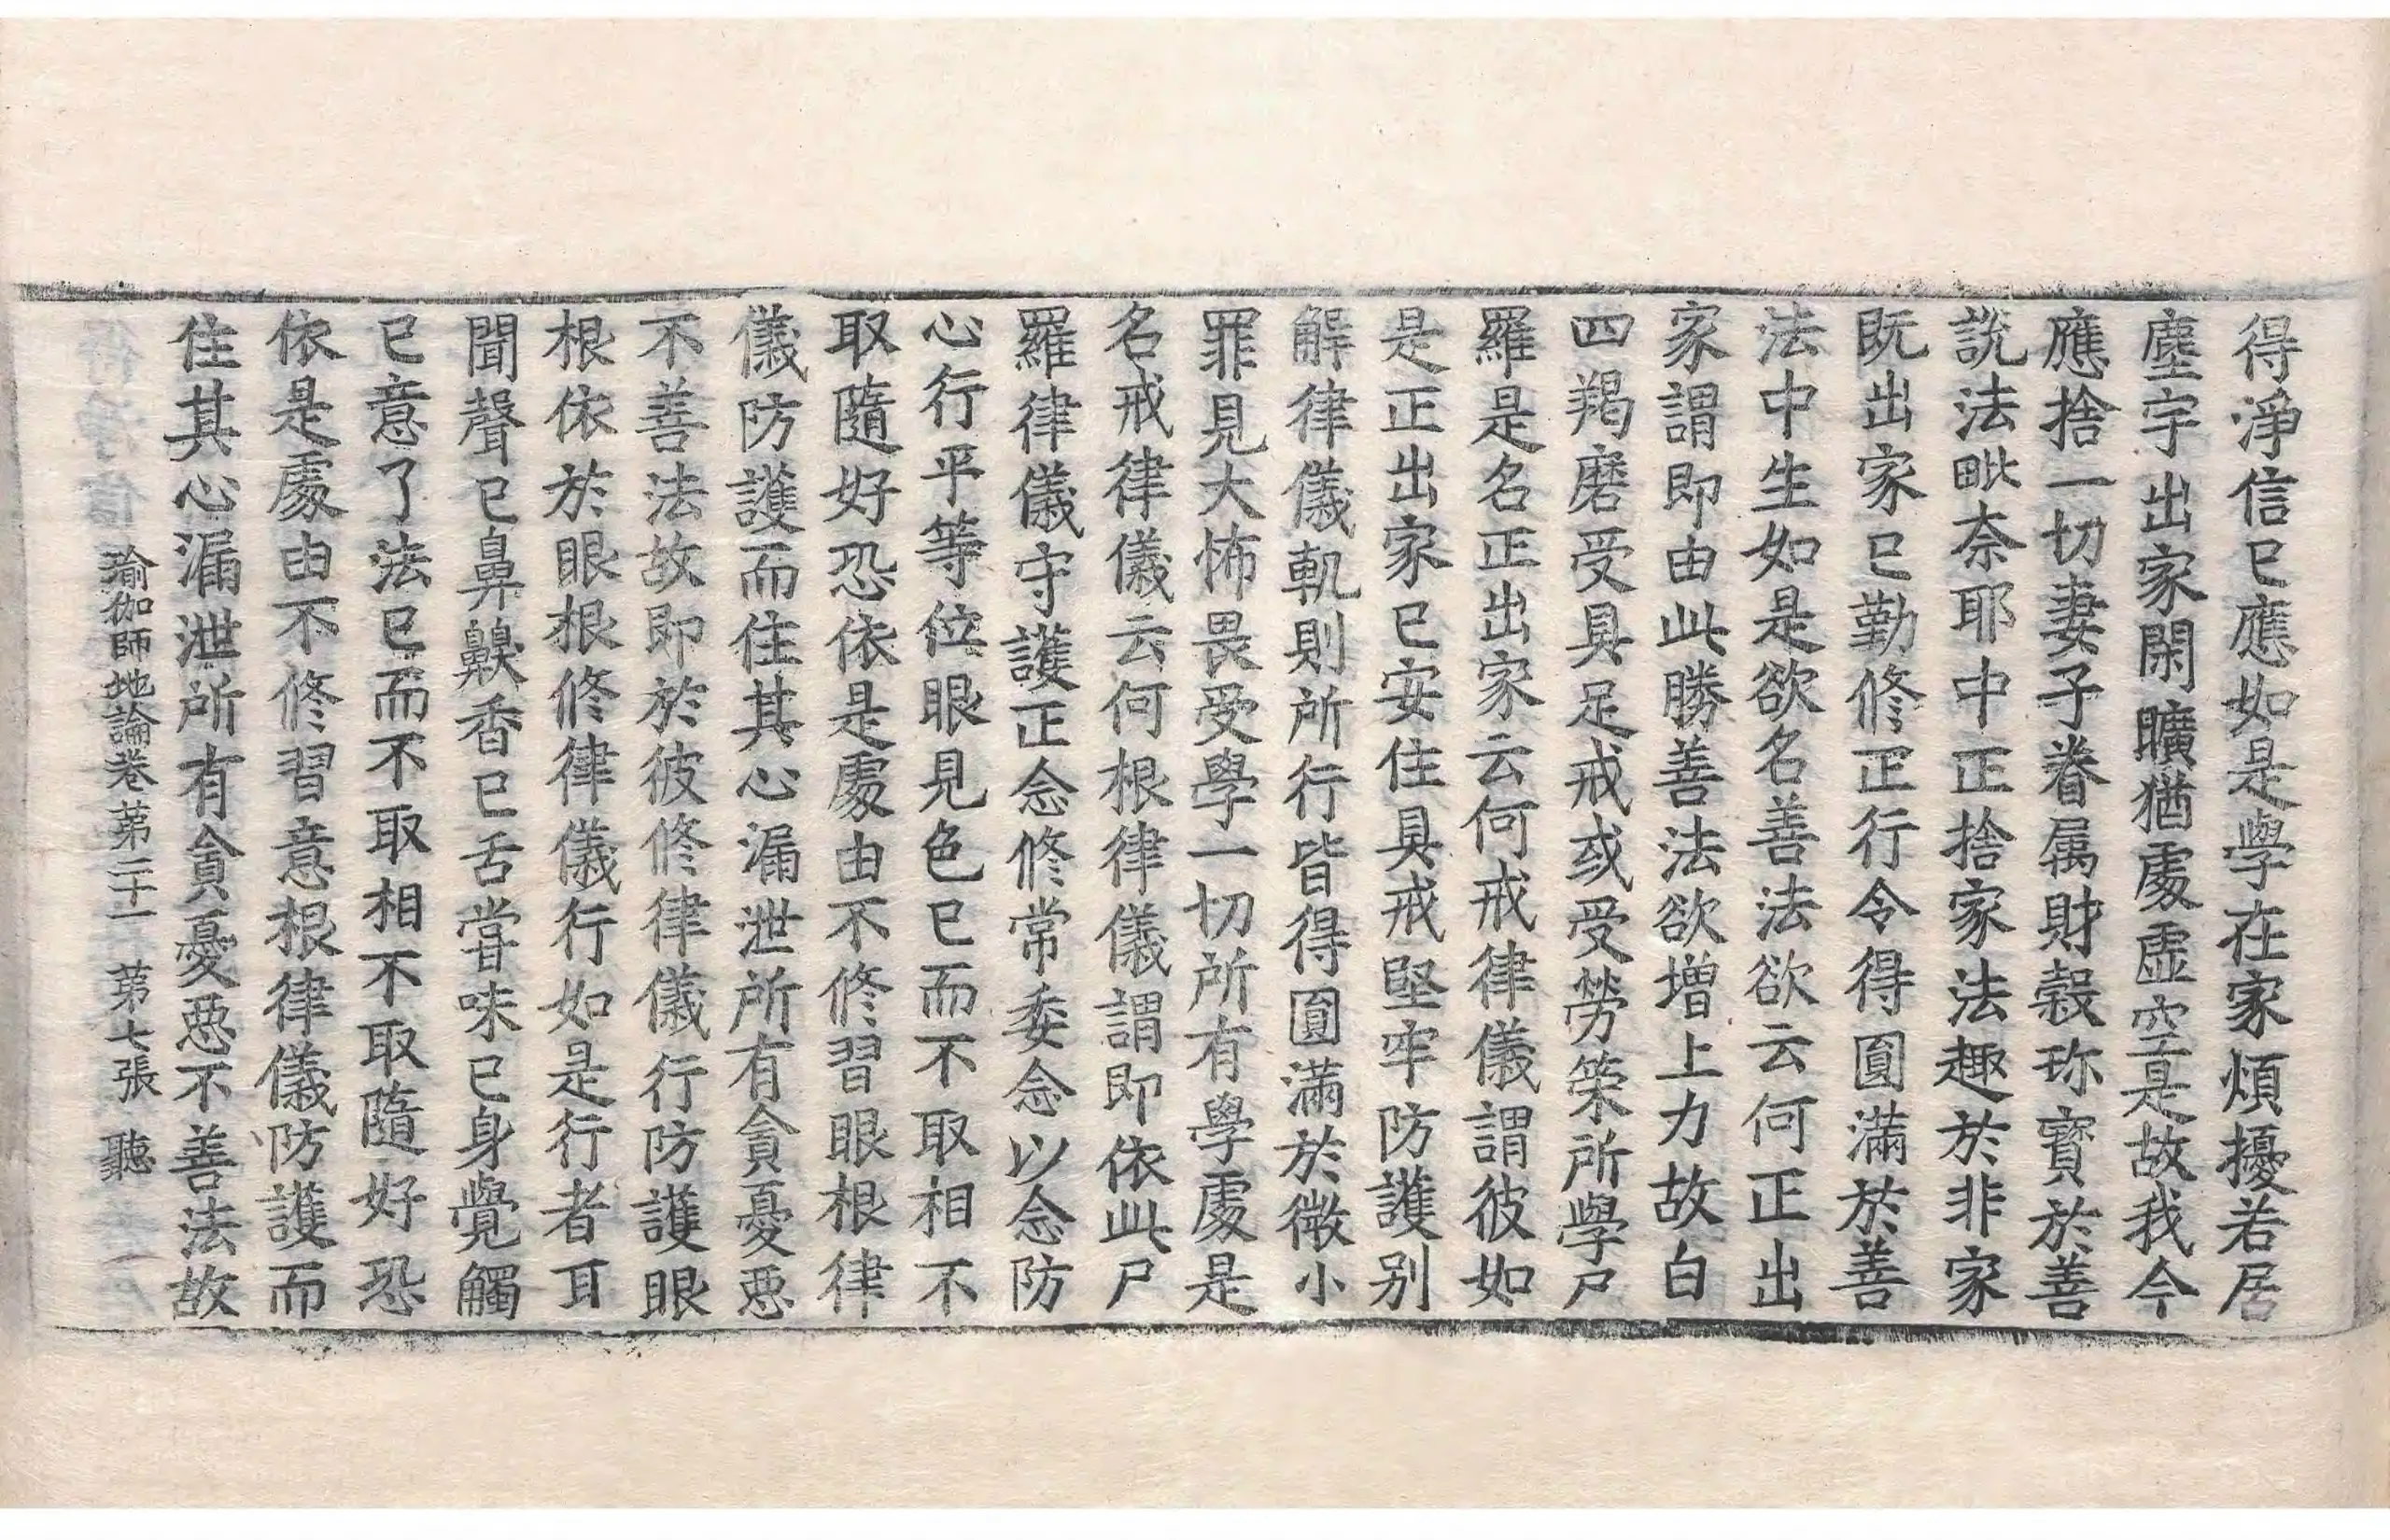 得淨信已應如是學在家煩擾若居
塵宇出家閑曠猶處虛空是故我今
應捨一切妻子眷属財穀珎寶於善
說法毗奈耶中正捨家法趣於非家
既出家已勤修正行令得圓滿於善
法中生如是欲名善法欲云何正出
家謂即由此勝善法欲增上力故白
四羯磨受具足戒或受勞策所學尸
羅是名正出家云何戒律儀謂彼如
是正出家已安住具戒堅牢防護别
解律儀軌則所行皆得圓滿於微小
罪見大怖畏受學一切所有學處是
名戒律儀云何根律儀謂即依此尸
羅律儀守護正念修常委念以念防
心行平等位眼見色已而不取相不
取隨好恐依是處由不修習眼根律
儀防護而住其心漏泄所有貪憂惡
不善法故即於彼修律儀行防護眼
根依於眼根修律儀行如是行者耳
聞聲已鼻齅香已舌甞味已身覺觸
已意了法已而不取相不取隨好恐
依是處由不修習意根律儀防護而
住其心漏泄所有貪憂惡不善法故
瑜伽師地論卷第二十一 第七張 聽